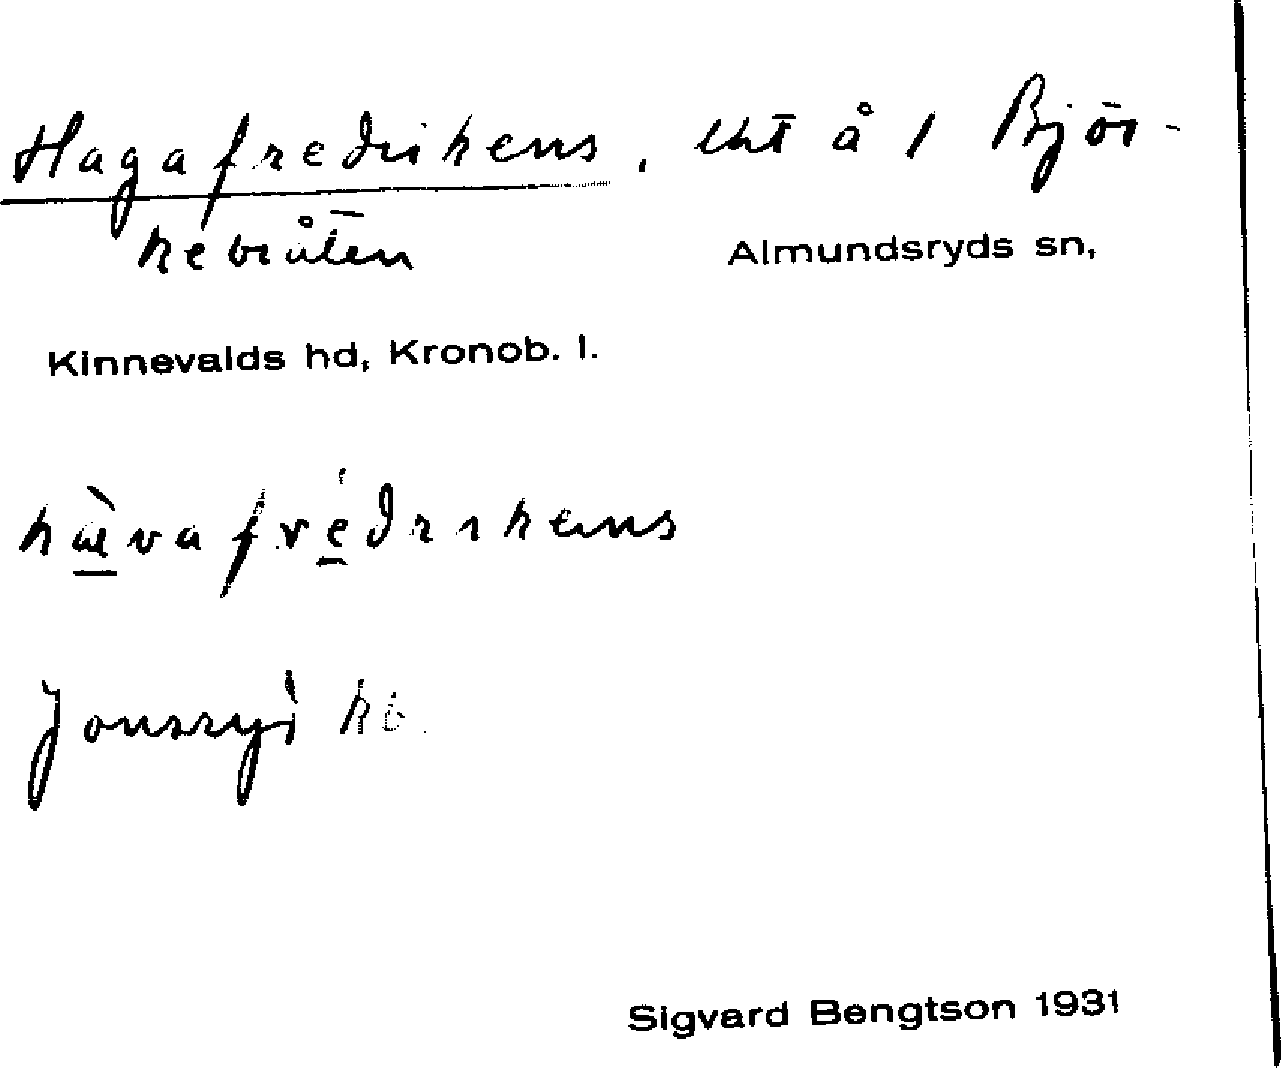 Hagafredrikens, utt å 1 Björ-
kebråten Almundsryds sn,
Kinnevalds hd, Kronob. l.
Jonsryd
Sigvard Bengtson 1931